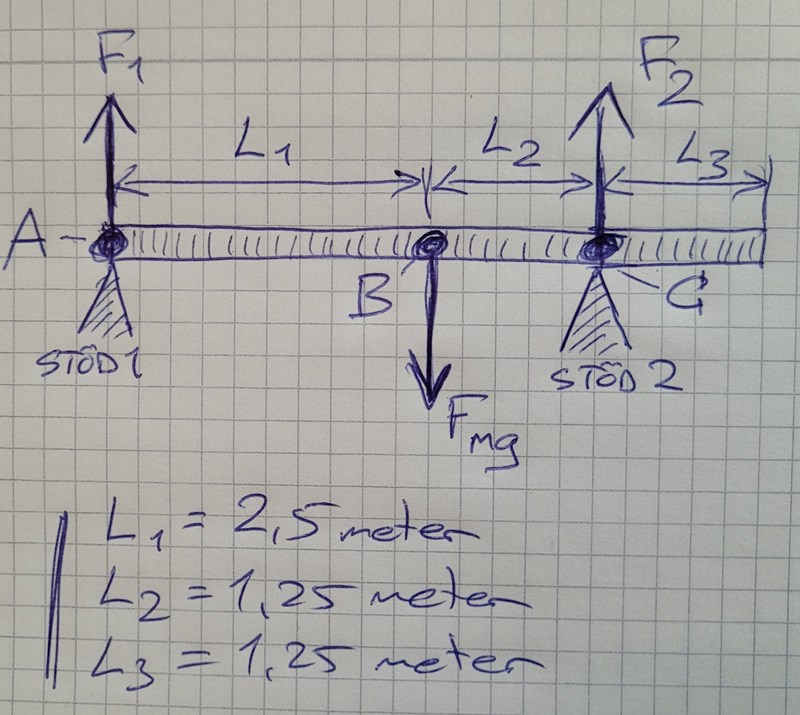 F1 F2
L1 L2 L3
A B C
STÖD 1 STÖD 2
Fmg
L1 = 2,5 meter
L2 = 1,25 meter
L3 = 1,25 meter